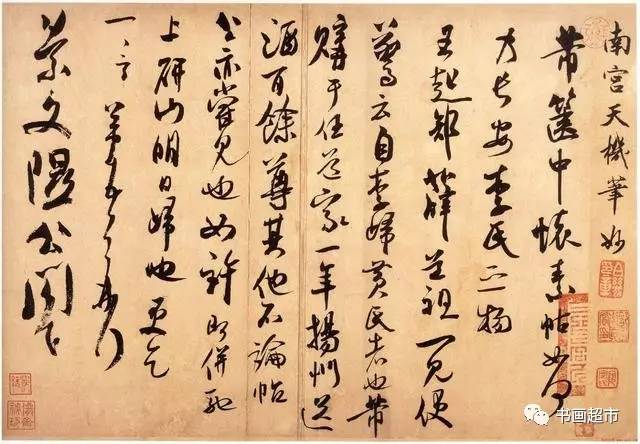 南宮天機筆妙
芾篋中懷素帖如何
乃長安李氏之物
王起部薛道祖一見便
驚云自李歸黃氏者也芾
購于任道家一年揚州送
酒百餘尊其他不論帖
公亦嘗見也如許即併馳
上研山明日歸也更乞
一言芾頓首再拜
景文隰公閣下
书画超市